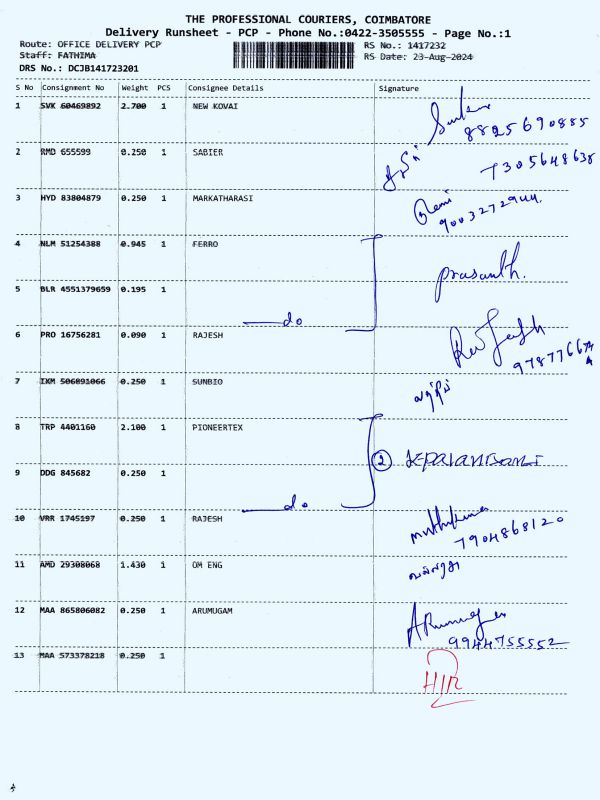 THE PROFESSIONAL COURIERS, COIMBATORE
Delivery Runsheet - PCP - Phone No.:0422-3505555 - Page No.:1
Route: OFFICE DELIVERY PCP RS No.: 1417232
Staff: FATHIMA RS Date: 23-Aug-2024
DRS No.: DCJB141723201
S No Consignment No Weight PCS Consignee Details Signature
1 SVK 60469892 2.700 1 NEW KOVAI
8825690885
2 RMD 655599 0.250 1 SABIER
7305648638
3 HYD 83804879 0.250 1 MARKATHARASI
9003272944.
4 NLM 51254388 0.945 1 FERRO
prasanth.
5 BLR 4551379659 0.195 1
do
6 PRO 16756281 0.090 1 RAJESH
7 IKM 506891066 0.250 1 SUNBIO
8 TRP 4401160 2.100 1 PIONEERTEX
2 K-palanisami
9 DDG 845682 0.250 1
do
10 VRR 1745197 0.250 1 RAJESH
7904868120
11 AMD 29308068 1.430 1 OM ENG
12 MAA 865806082 0.250 1 ARUMUGAM
9944755552
13 MAA 573378218 0.250 1